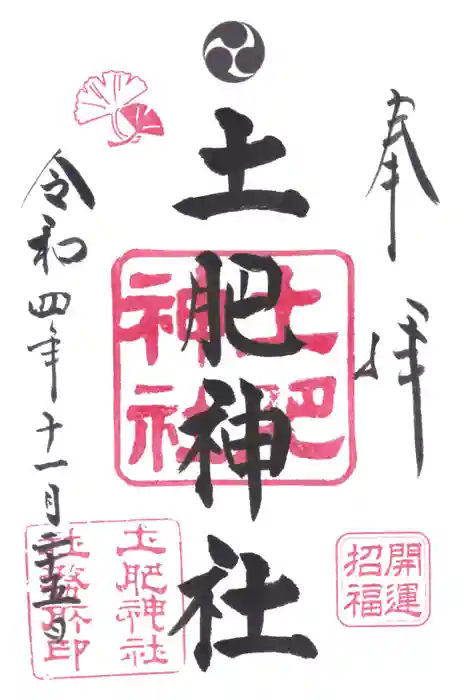 奉拝
土肥神社
土肥神社
開運招福
令和四年十一月二十五日
土肥神社
社務所印